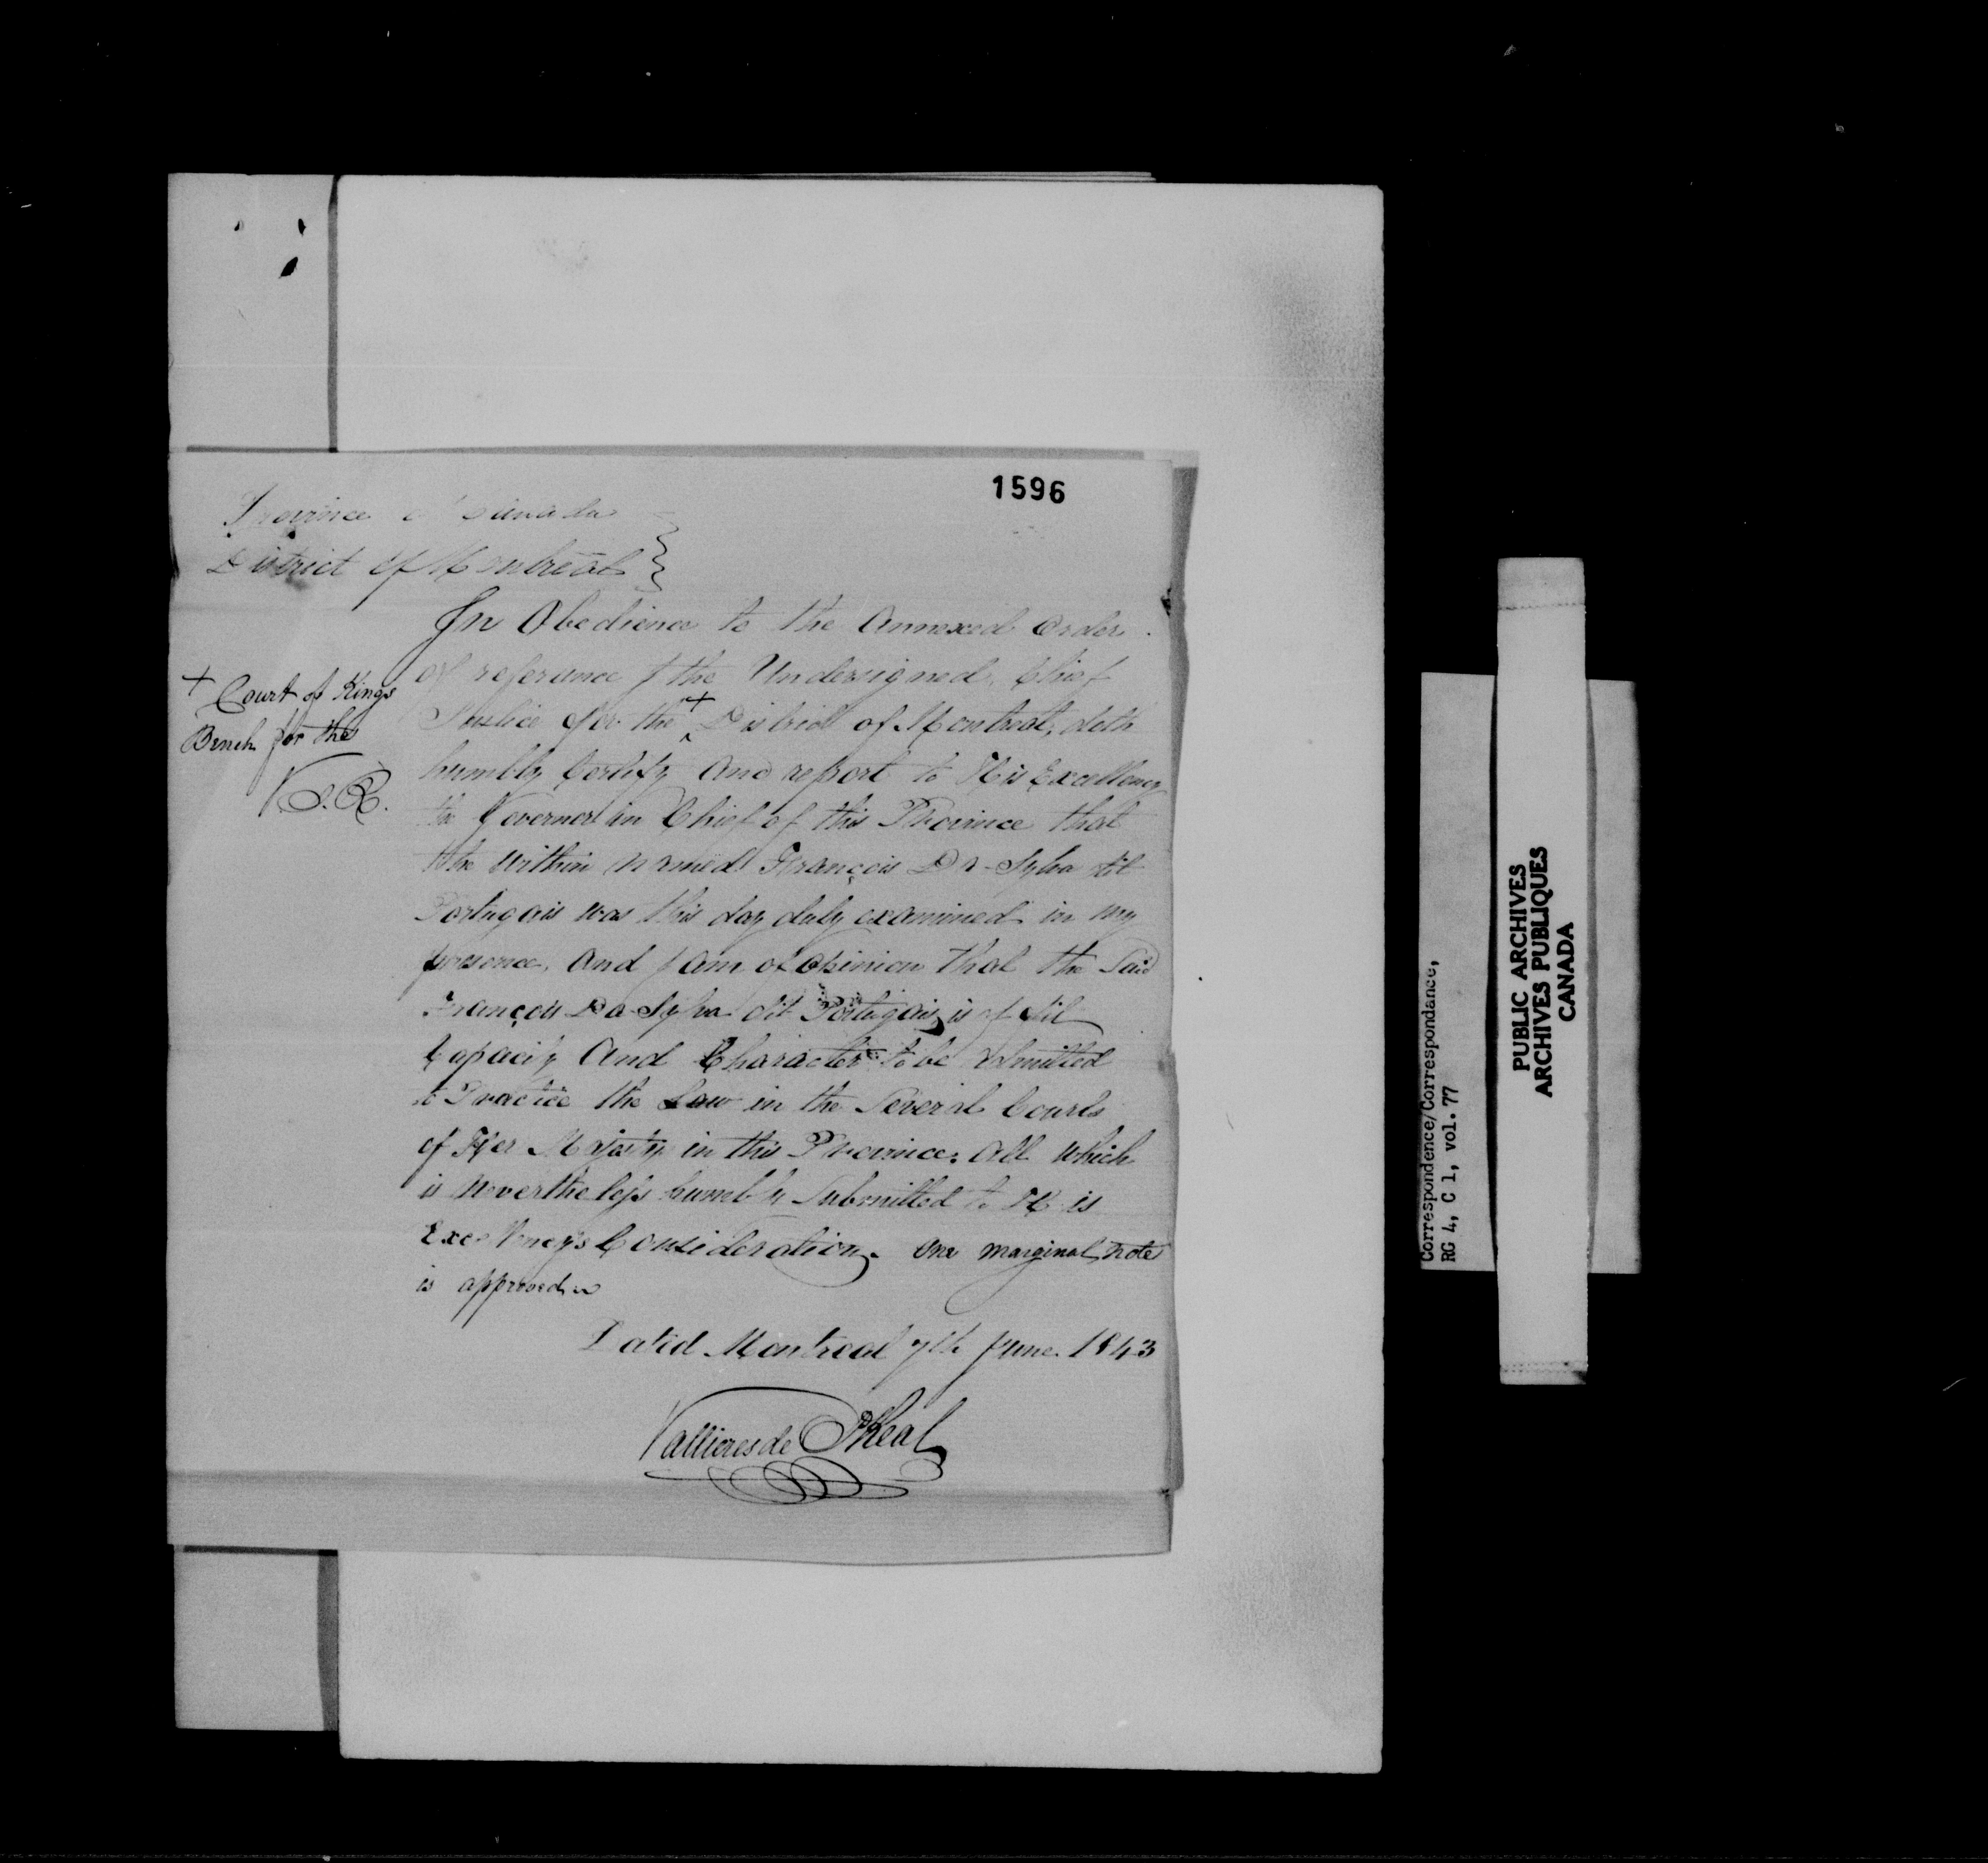 1596
Province of Canada
District of Montreal
In Obedience to the Annexed Order
of reference I the Undersigned, Chief
Justice for the + District of Montreal, doth
humbly Certify and report to His Excellency
the Governor in Chief of this Province that
the within named François Da-Sylva dit
Portugais was this day duly examined in my
presence, and I am of opinion that the Said
François Da-Sylva dit Portugais is of fit
Capacity and Character to be admitted
to Practice the Law in the Several Courts
of Her Majesty in this Province. All which
is Nevertheless humbly Submitted to His
Excellency's Consideration. One marginal note
is approved
Dated Montreal 7th June 1843
Vallieres de St Real
+ Court of Kings
Bench for the
V. S. R.
Correspondence/Correspondance,
RG 4, C 1, vol. 77
PUBLIC ARCHIVES
ARCHIVES PUBLIQUES
CANADA